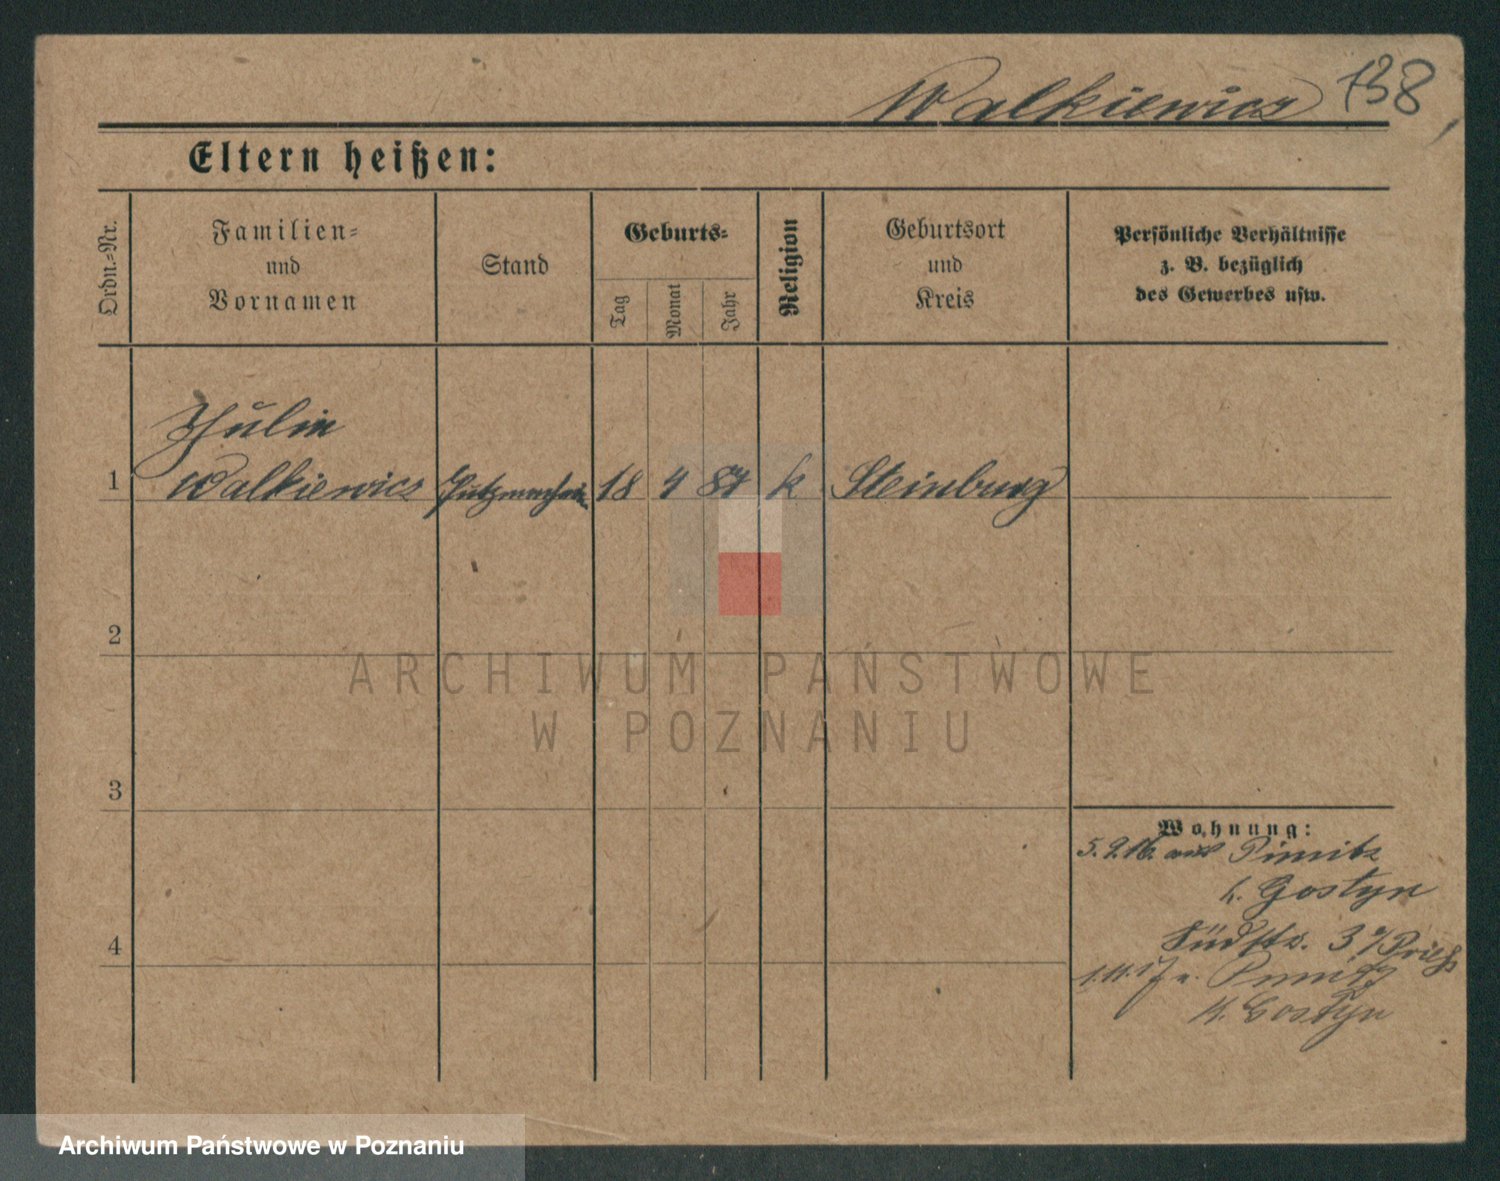 Walkiewicz 138
Eltern heißen:
Ordn.-Nr.
Familien-
und
Vornamen
Stand
Geburts-
Tag
Monat
Jahr
Religion
Geburtsort
und
Kreis
Persönliche Verhältnisse
z. B. bezüglich
des Gewerbes usw.
1
Walkiewicz
18
4
87
k
Steinburg
2
3
4
Wohnung:
5.9.16. aus
k. Gostyn
Südstr. 3
K. Gostyn
ARCHIWUM PAŃSTWOWE
W POZNANIU
Archiwum Państwowe w Poznaniu